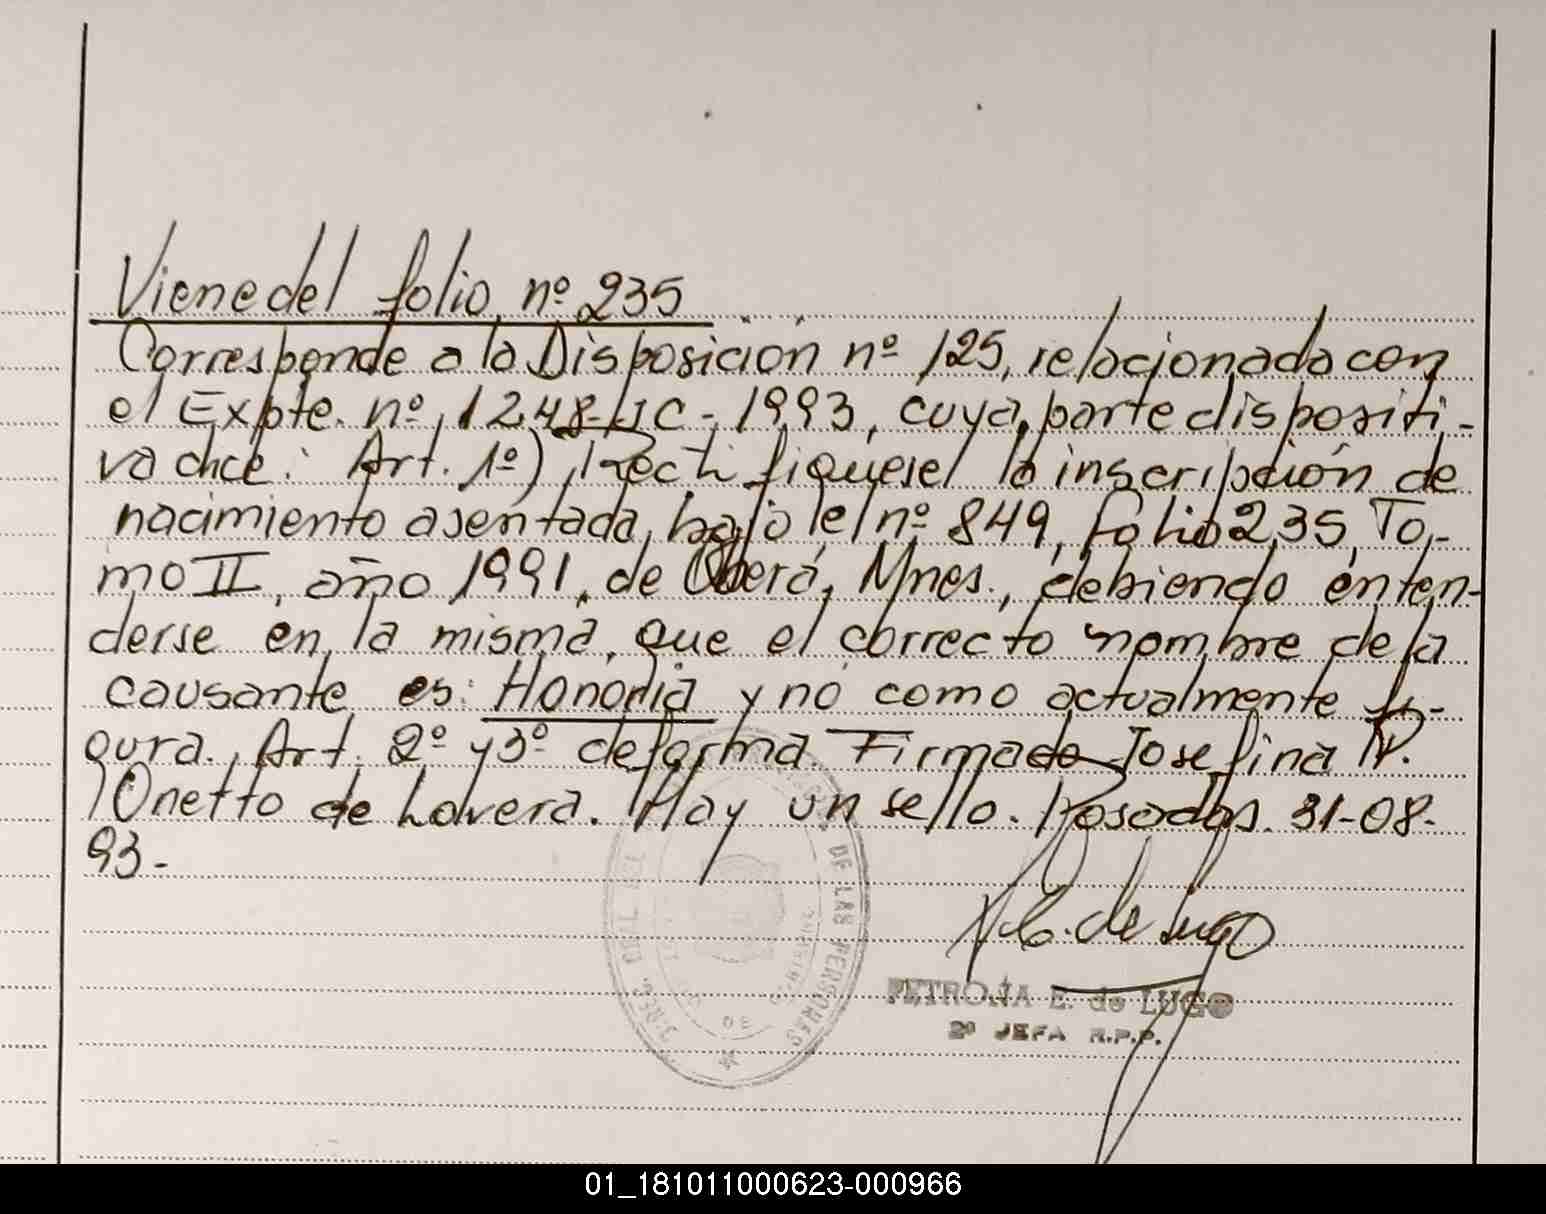 Viene del folio nº 235
Corresponde a la Disposición nº 125, relacionada con
el Expte. nº 1248-JC-1993, cuya parte dispositi-
va dice: Art. 1º) Rectifiquese el la inscripción de
nacimiento asentada bajo el nº 849, folio 235, To-
mo II, año 1991, de Oberá, Mnes., debiendo enten-
derse en la misma, que el correcto nombre de la
causante es: Honoria y no como actualmente fi-
gura. Art. 2º y 3º de forma. Firmado Josefina P.
Onetto de Lovera. Hay un sello. Posadas. 31-08-
93-
DE LAS PERSONAS
P. E. de Lugo
PETRONA E. de LUGO
2º JEFA R.P.P.
01_181011000623-000966